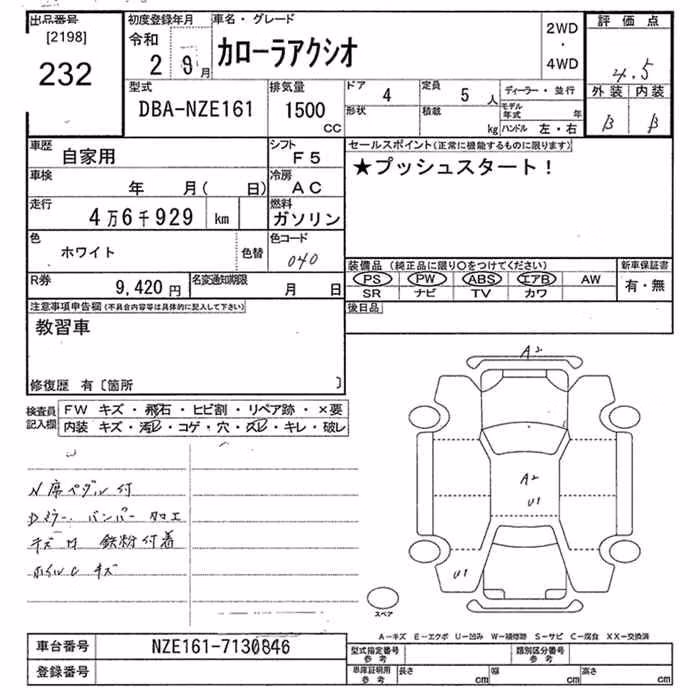 出品番号
[2198]
232
初度登録年月
令和
2 9月
車名・グレード
カローラアクシオ
2WD
・
4WD
評価点
4.5
外装 内装
B B
型式
DBA-NZE161
排気量
1500
CC
ドア
4
定員
5 人
ディーラー・並行
形状
積載
kg
モデル年式 年
ハンドル 左・右
車歴
自家用
シフト
F5
車検
年 月( 日)
冷房
AC
走行
4万6千929 km
燃料
ガソリン
色
ホワイト
色替
色コード
040
R券
9,420円
名変通知期限
月 日
セールスポイント(正常に機能するものに限ります)
★プッシュスタート!
装備品(純正品に限り〇をつけてください)
PS PW ABS エアB AW
SR ナビ TV カワ
新車保証書
有・無
後日品
注意事項申告欄(不具合内容等は具体的に記入して下さい)
教習車
修復歴 有〔箇所 〕
検査員
記入欄
FW キズ・飛石・ヒビ割・リペア跡・×要
内装 キズ・汚レ・コゲ・穴・スレ・キレ・破レ
N席ペダル付
Dミラー、バンパー加工
キズ 鉄粉付着
ホイルC キズ
A2
A2
U1
U1
スペア
A－キズ E－エクボ U－凹み W－補修跡 S－サビ C－腐食 XX－交換済
車台番号
NZE161-7130846
登録番号
型式指定番号
参考
類別区分番号
参考
車庫証明用
参考
長さ cm
幅 cm
高さ cm